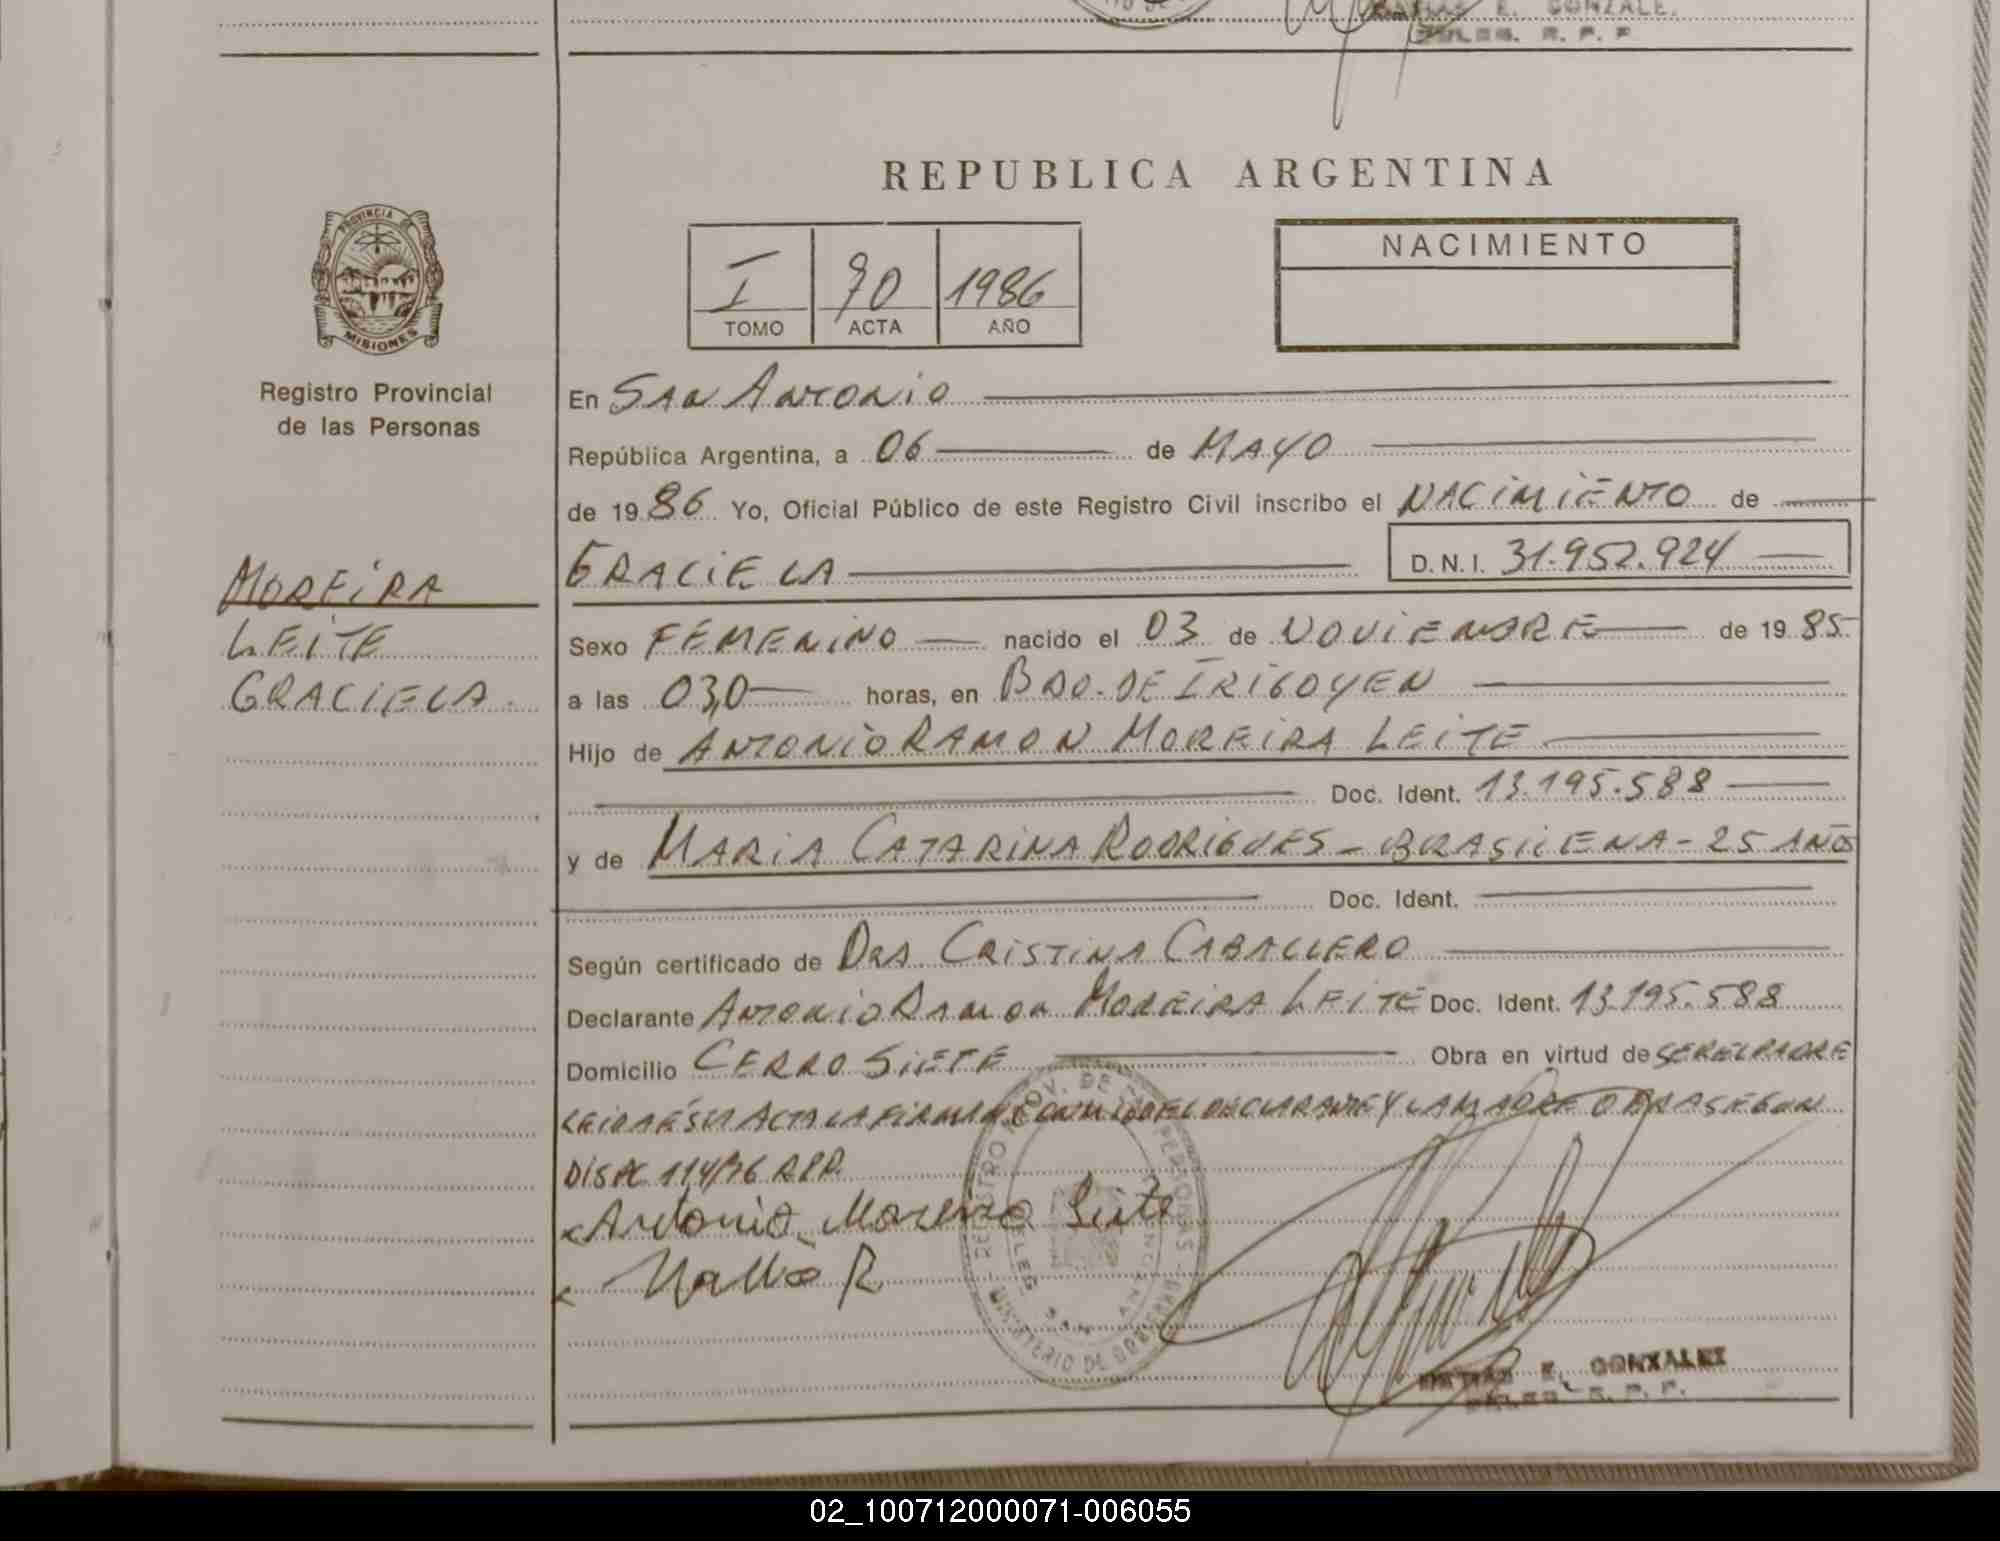 E. GONZALE.
R. P. P
REPUBLICA ARGENTINA
PROVINCIA
MISIONES
Registro Provincial
de las Personas
I 70 1986
TOMO ACTA AÑO
NACIMIENTO
En SAN ANTONIO
República Argentina, a 06 de MAYO
de 1986 Yo, Oficial Público de este Registro Civil inscribo el NACIMIENTO de
GRACIELA D.N.I. 31.952.924
MOREIRA
LEITE
GRACIELA.
Sexo FEMENINO nacido el 03 de NOVIEMBRE de 1985.
a las 03,0 horas, en BDO. DE IRIGOYEN
Hijo de ANTONIO RAMON MOREIRA LEITE
Doc. Ident. 13.195.588
y de MARIA CATARINA RODRIGUES - BRASILENA - 25 AÑOS
Doc. Ident.
Según certificado de DRA. CRISTINA CABALLERO
Declarante ANTONIO RAMON MOREIRA LEITE Doc. Ident. 13.195.588
Domicilio CERRO SIETE Obra en virtud de SER EL PADRE
LEIDA ÉSTA ACTA LA FIRMAN CONMIGO EL DECLARANTE Y LA MADRE OBRA SEGUN
DISPC. 114/76 R.P.P.
Antonio Moreira Leite
Maria R
REGISTRO PROV. DE LAS PERSONAS
MINISTERIO DE GOBIERNO
E. GONZALEZ
R. P. P.
02_100712000071-006055